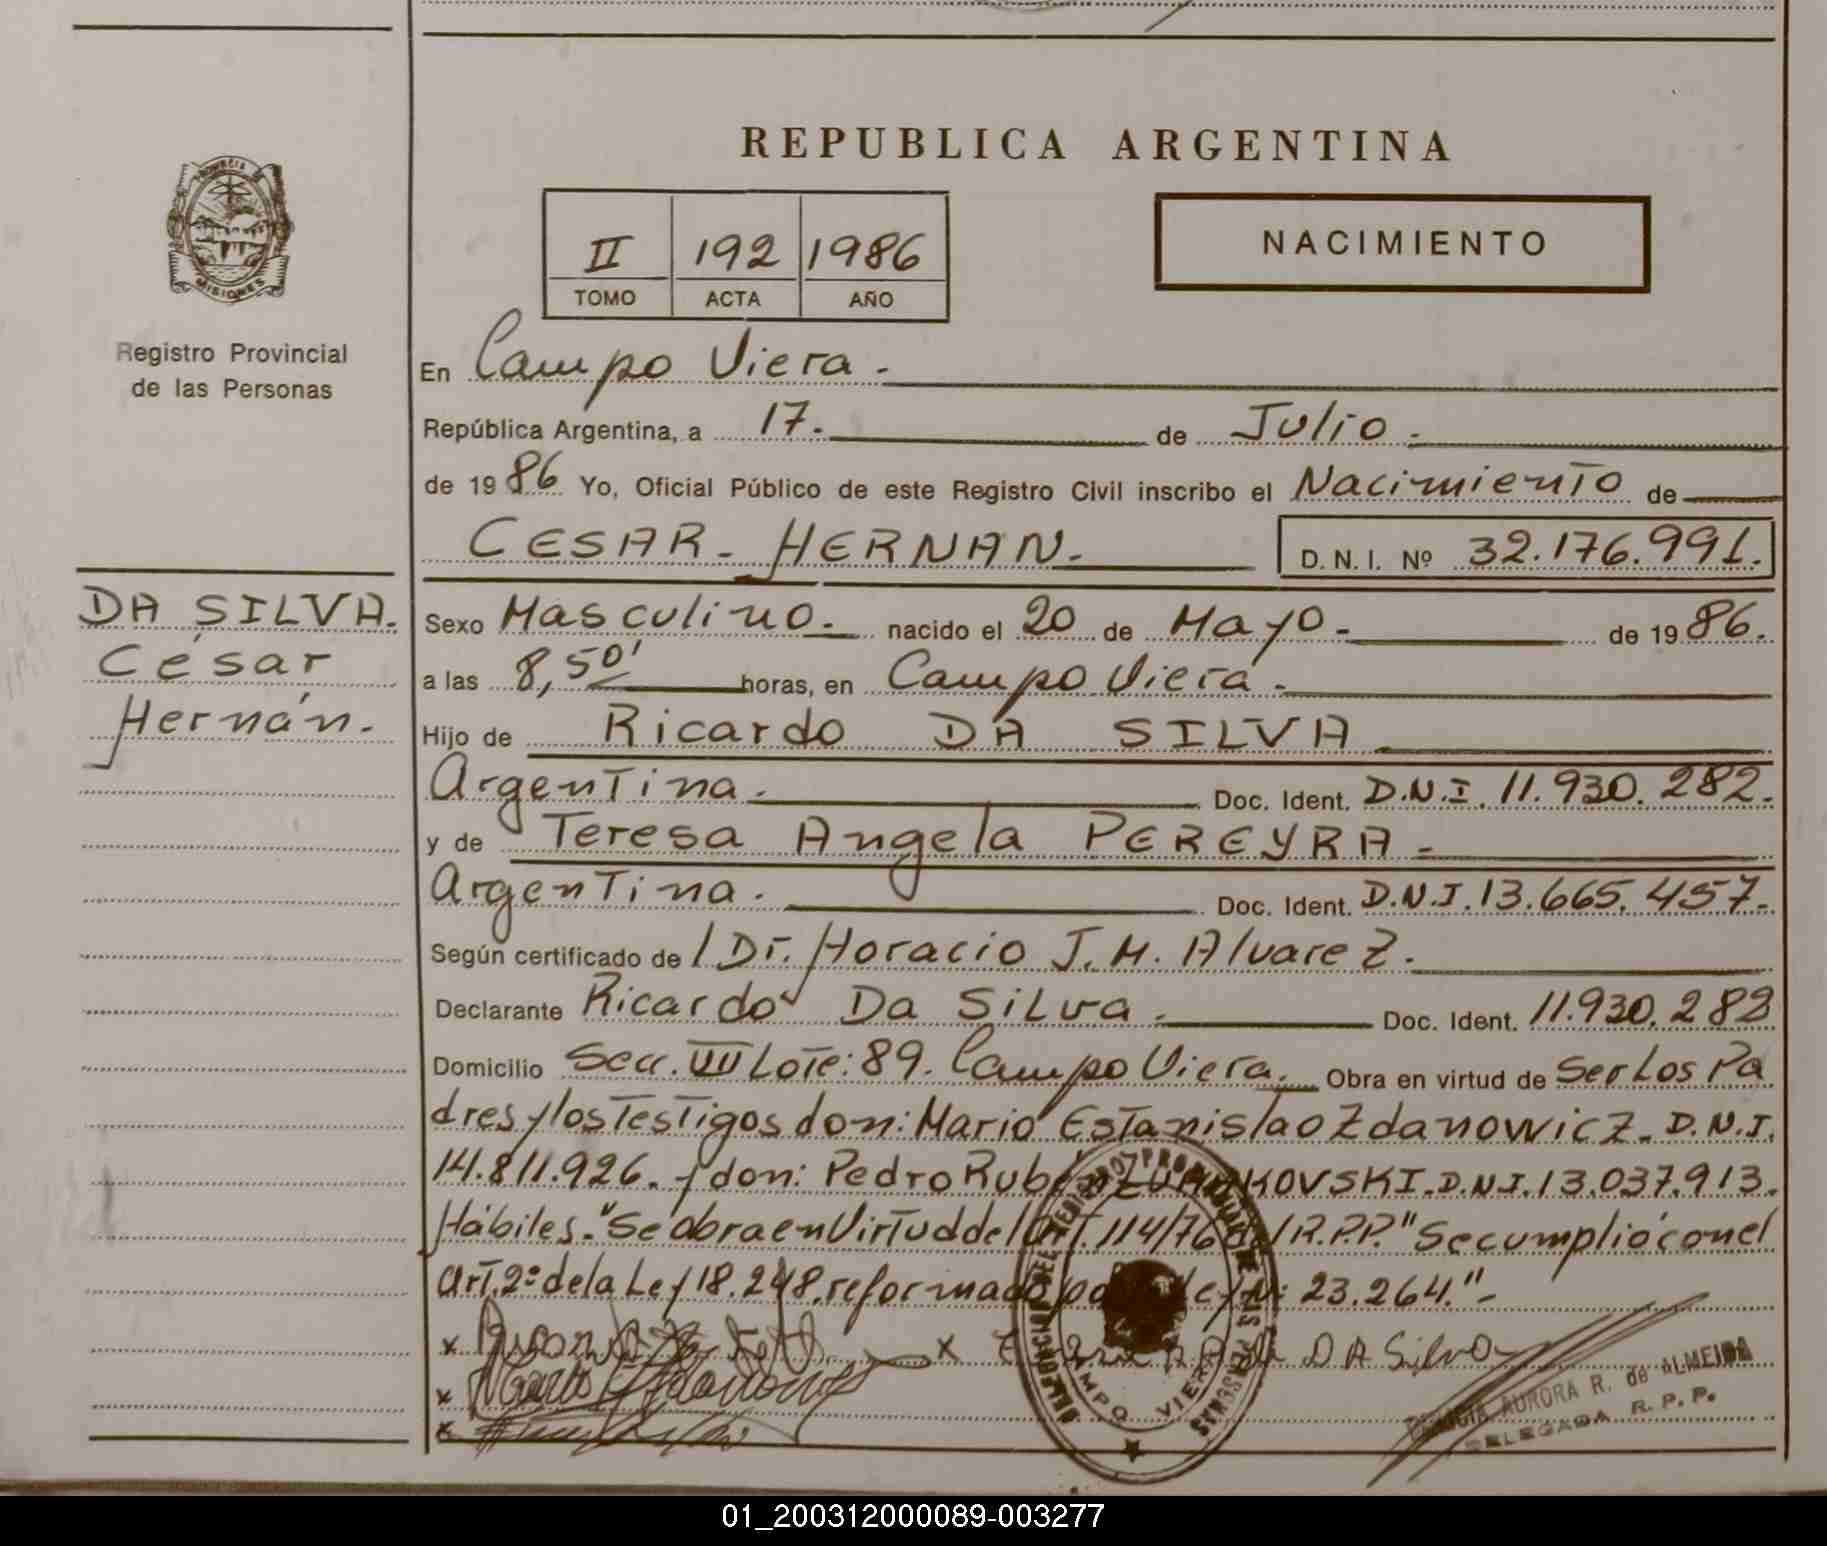 REPUBLICA ARGENTINA
PROVINCIA DE
MISIONES
Registro Provincial
de las Personas
II 192 1986
TOMO ACTA AÑO
NACIMIENTO
En Campo Viera.
República Argentina, a 17. de Julio.
de 1986 Yo, Oficial Público de este Registro Civil inscribo el Nacimiento de
CESAR HERNAN. D. N. I. Nº 32.176.991.
DA SILVA.
César
Hernán.
Sexo Masculino. nacido el 20 de Mayo de 1986.
a las 8,50' horas, en Campo Viera.
Hijo de Ricardo DA SILVA
Argentina. Doc. Ident. D.N.I. 11.930.282.
y de Teresa Angela PEREYRA
Argentina. Doc. Ident. D.N.I. 13.665.457.
Según certificado de / Dr. Horacio J. M. Alvarez.
Declarante Ricardo Da Silva. Doc. Ident. 11.930.282
Domicilio Secc. VII Lote: 89. Campo Viera. Obra en virtud de Ser Los Pa
dres y los Testigos don: Mario Estanislao Zdanowicz. D.N.I.
14.811.926. y don: Pedro Rubén D.N.I. 13.037.913.
Hábiles. "Se obra en Virtud del Art. 114/76 del R.P.P." Se cumplió con el
Art. 2º de la Ley 18.248. reformado por Ley Nº 23.264."-
x x DA Silva
x
x
CAMPO VIERA
AURORA R. de ALMEIDA
DELEGADA R. P. P.
01_200312000089-003277